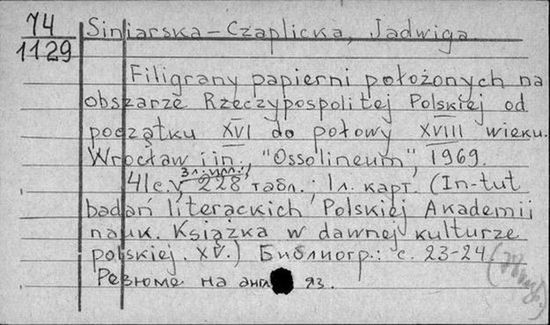 74
1129
Siniarska-Czaplicka, Jadwiga.
Filigrany papierni położonych na
obszarze Rzeczypospolitej Polskiej od
początku XVI do połowy XVIII wieku.
Wrocław i in., "Ossolineum", 1969.
3 л. илл.;
41 с., 228 табл.; 1 л. карт. (In-tut
badań literackich Polskiej Akademii
nauk. Książka w dawnej kulturze
polskiej. XV.) Библиогр.: с. 23-24.
Резюме на англ яз.